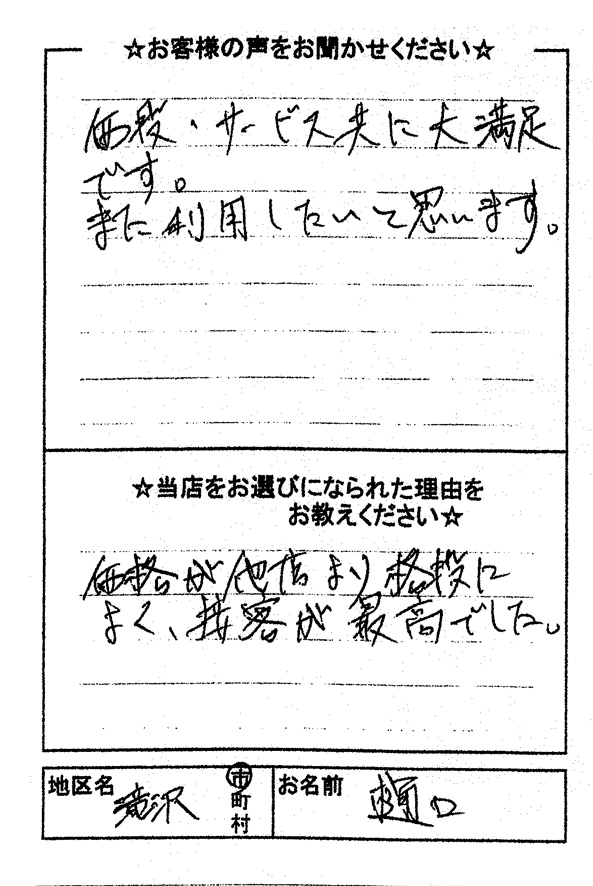 ☆お客様の声をお聞かせください☆
価段・サービス共に大満足
です。
また利用したいと思います。
☆当店をお選びになられた理由を
お教えください☆
価格が他店より格段に
よく、接客が最高でした。
地区名 滝沢 市 町 村 お名前 樋口